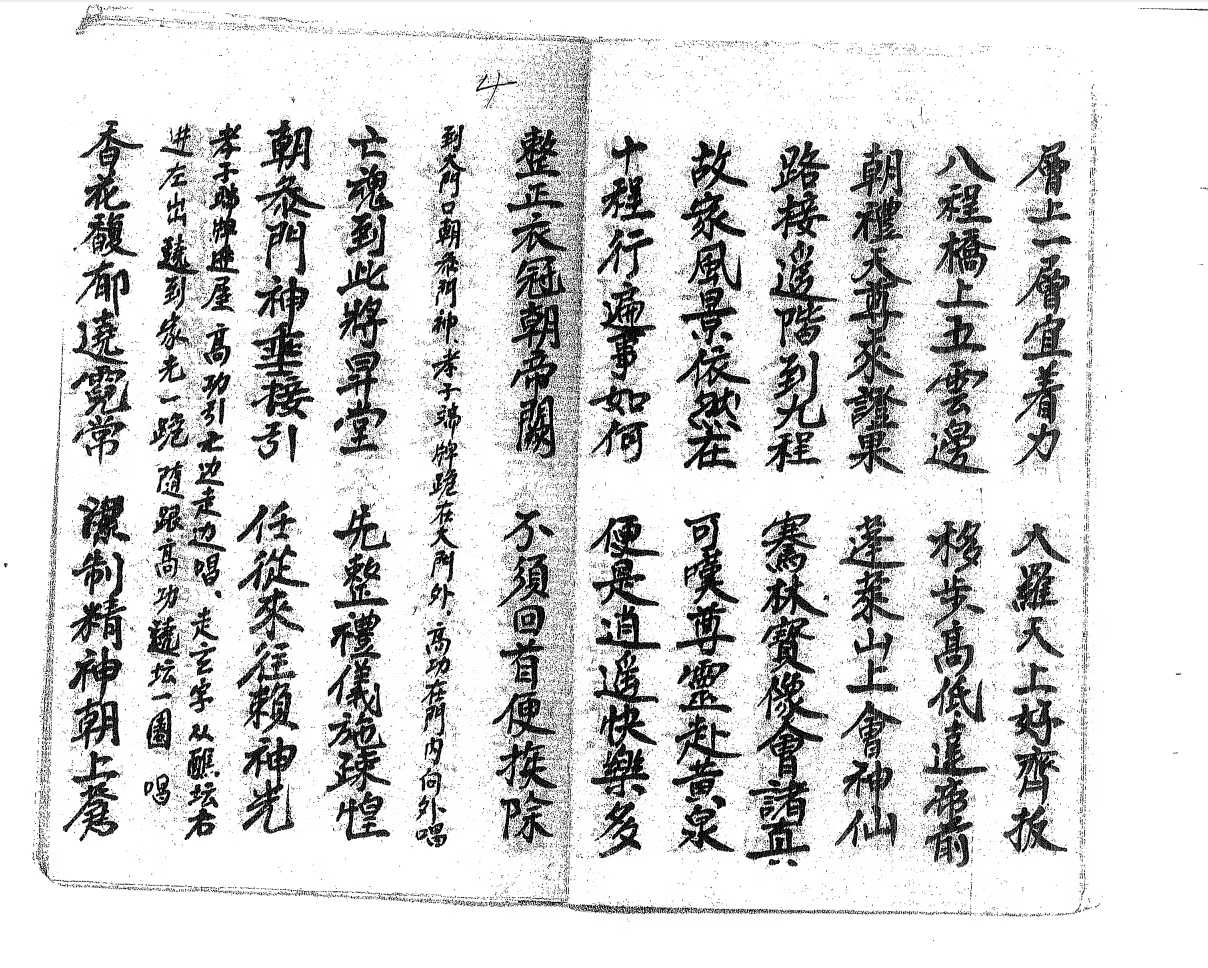 層上一層宜着力　大羅天上好齊扳
八程橋上五雲邊　移步高低達帝前
朝禮天尊來證果　蓬萊山上會神仙
路接遥階到九程　騫林寳像會諸真
故家風景依然在　可嘆尊靈赴黄泉
十程行遍事如何　便是逍遥快樂多
整正衣冠朝帝闕　不須回首便挨除
4
到大門口朝叅門神、孝子端牌跪在大門外、高功在門内向外唱
亡魂到此將昇堂　先整禮儀施疎惶
朝叅門神垂接引　任從來往賴神光
孝子端牌進屋 高功引亡边走边唱、走玄字从醮坛右
进左出遶到家先一跪 隨跟高功遶坛一圍 唱
香花馥郁遶霓常　制精神朝上